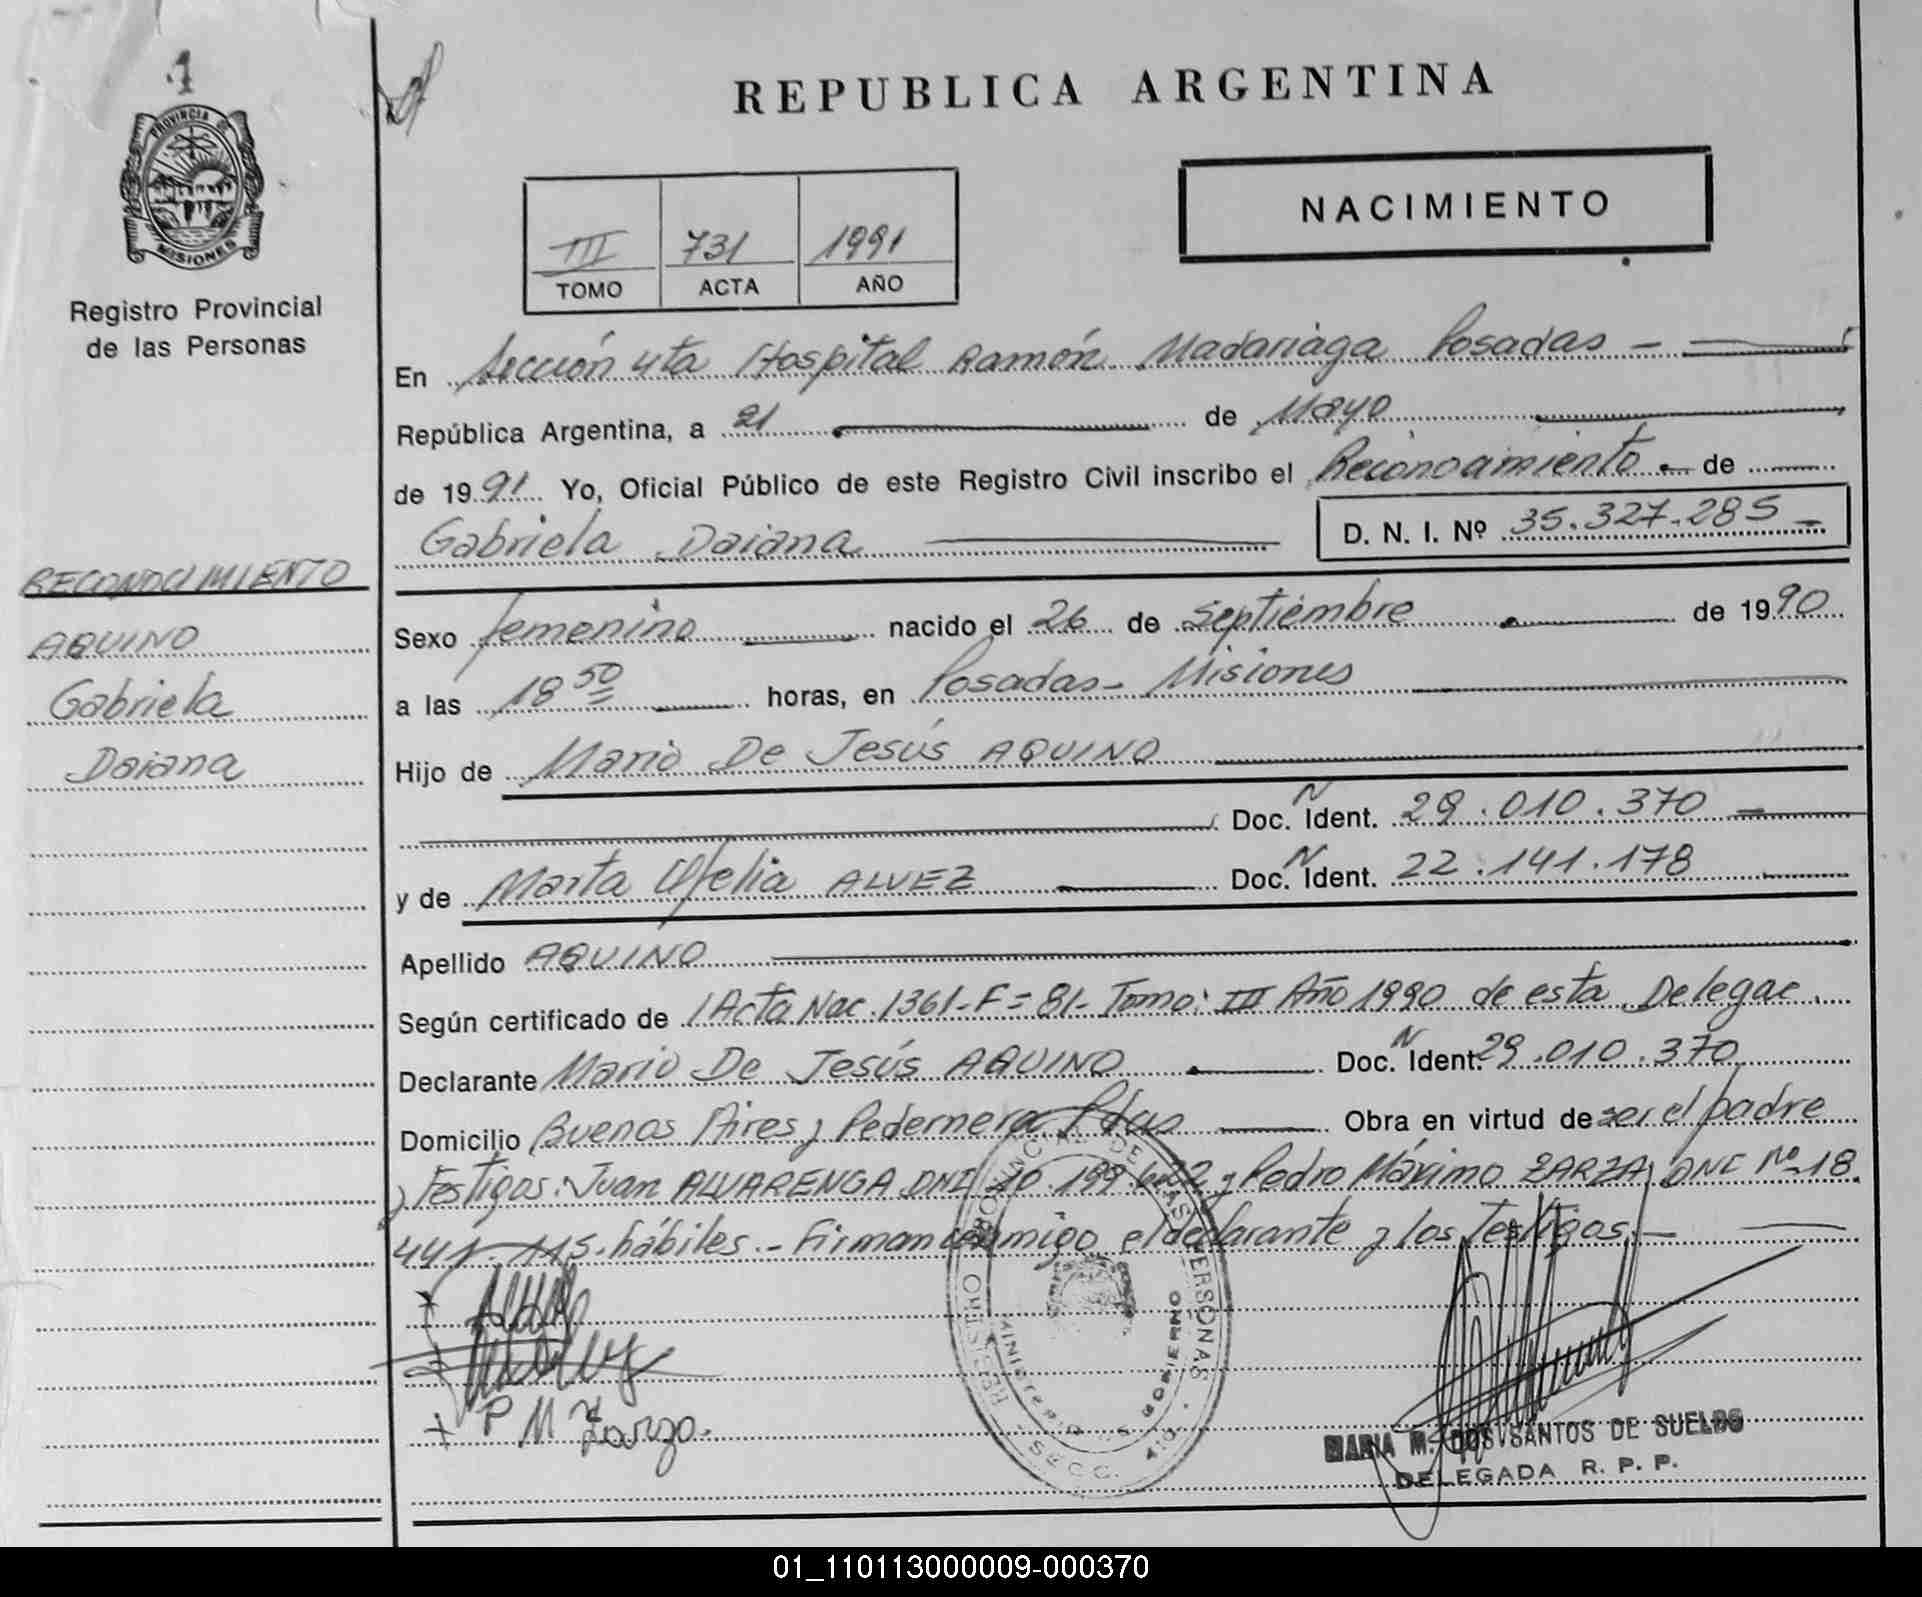 1
PROVINCIA DE
MISIONES
Registro Provincial
de las Personas
RECONOCIMIENTO
AQUINO
Gabriela
Daiana
REPUBLICA ARGENTINA
III 731 1991
TOMO ACTA AÑO
NACIMIENTO
En Sección 4ta Hospital Ramón Madariaga Posadas -
República Argentina, a 21 de Mayo
de 1991 Yo, Oficial Público de este Registro Civil inscribo el Reconocimiento de
Gabriela Daiana D. N. I. Nº 35.327.285 -
Sexo femenino nacido el 26 de Septiembre de 1990
a las 18 50 horas, en Posadas - Misiones
Hijo de Mario De Jesús AQUINO
Doc. N Ident. 29.010.370
y de Marta Ofelia ALVEZ Doc. N Ident. 22.141.178
Apellido AQUINO
Según certificado de Acta Nac. 1361 - F= 81 - Tomo: III Año 1990 de esta Delegac.
Declarante Mario De Jesús AQUINO Doc. N Ident. 29.010.370
Domicilio Buenos Aires y Pedernera Pdas Obra en virtud de ser el padre
y Testigos: Juan ALVARENGA DNI 10.199.422 y Pedro Máximo ZARZA DNI Nº 18.
441.115. hábiles. - Firman conmigo el declarante y los Testigos. -
P M Zarza.
REGISTRO PROVINCIAL DE LAS PERSONAS
MINISTERIO DE GOBIERNO
SECC. 4ta.
MARIA M. DOS SANTOS DE SUELDO
DELEGADA R. P. P.
01_110113000009-000370